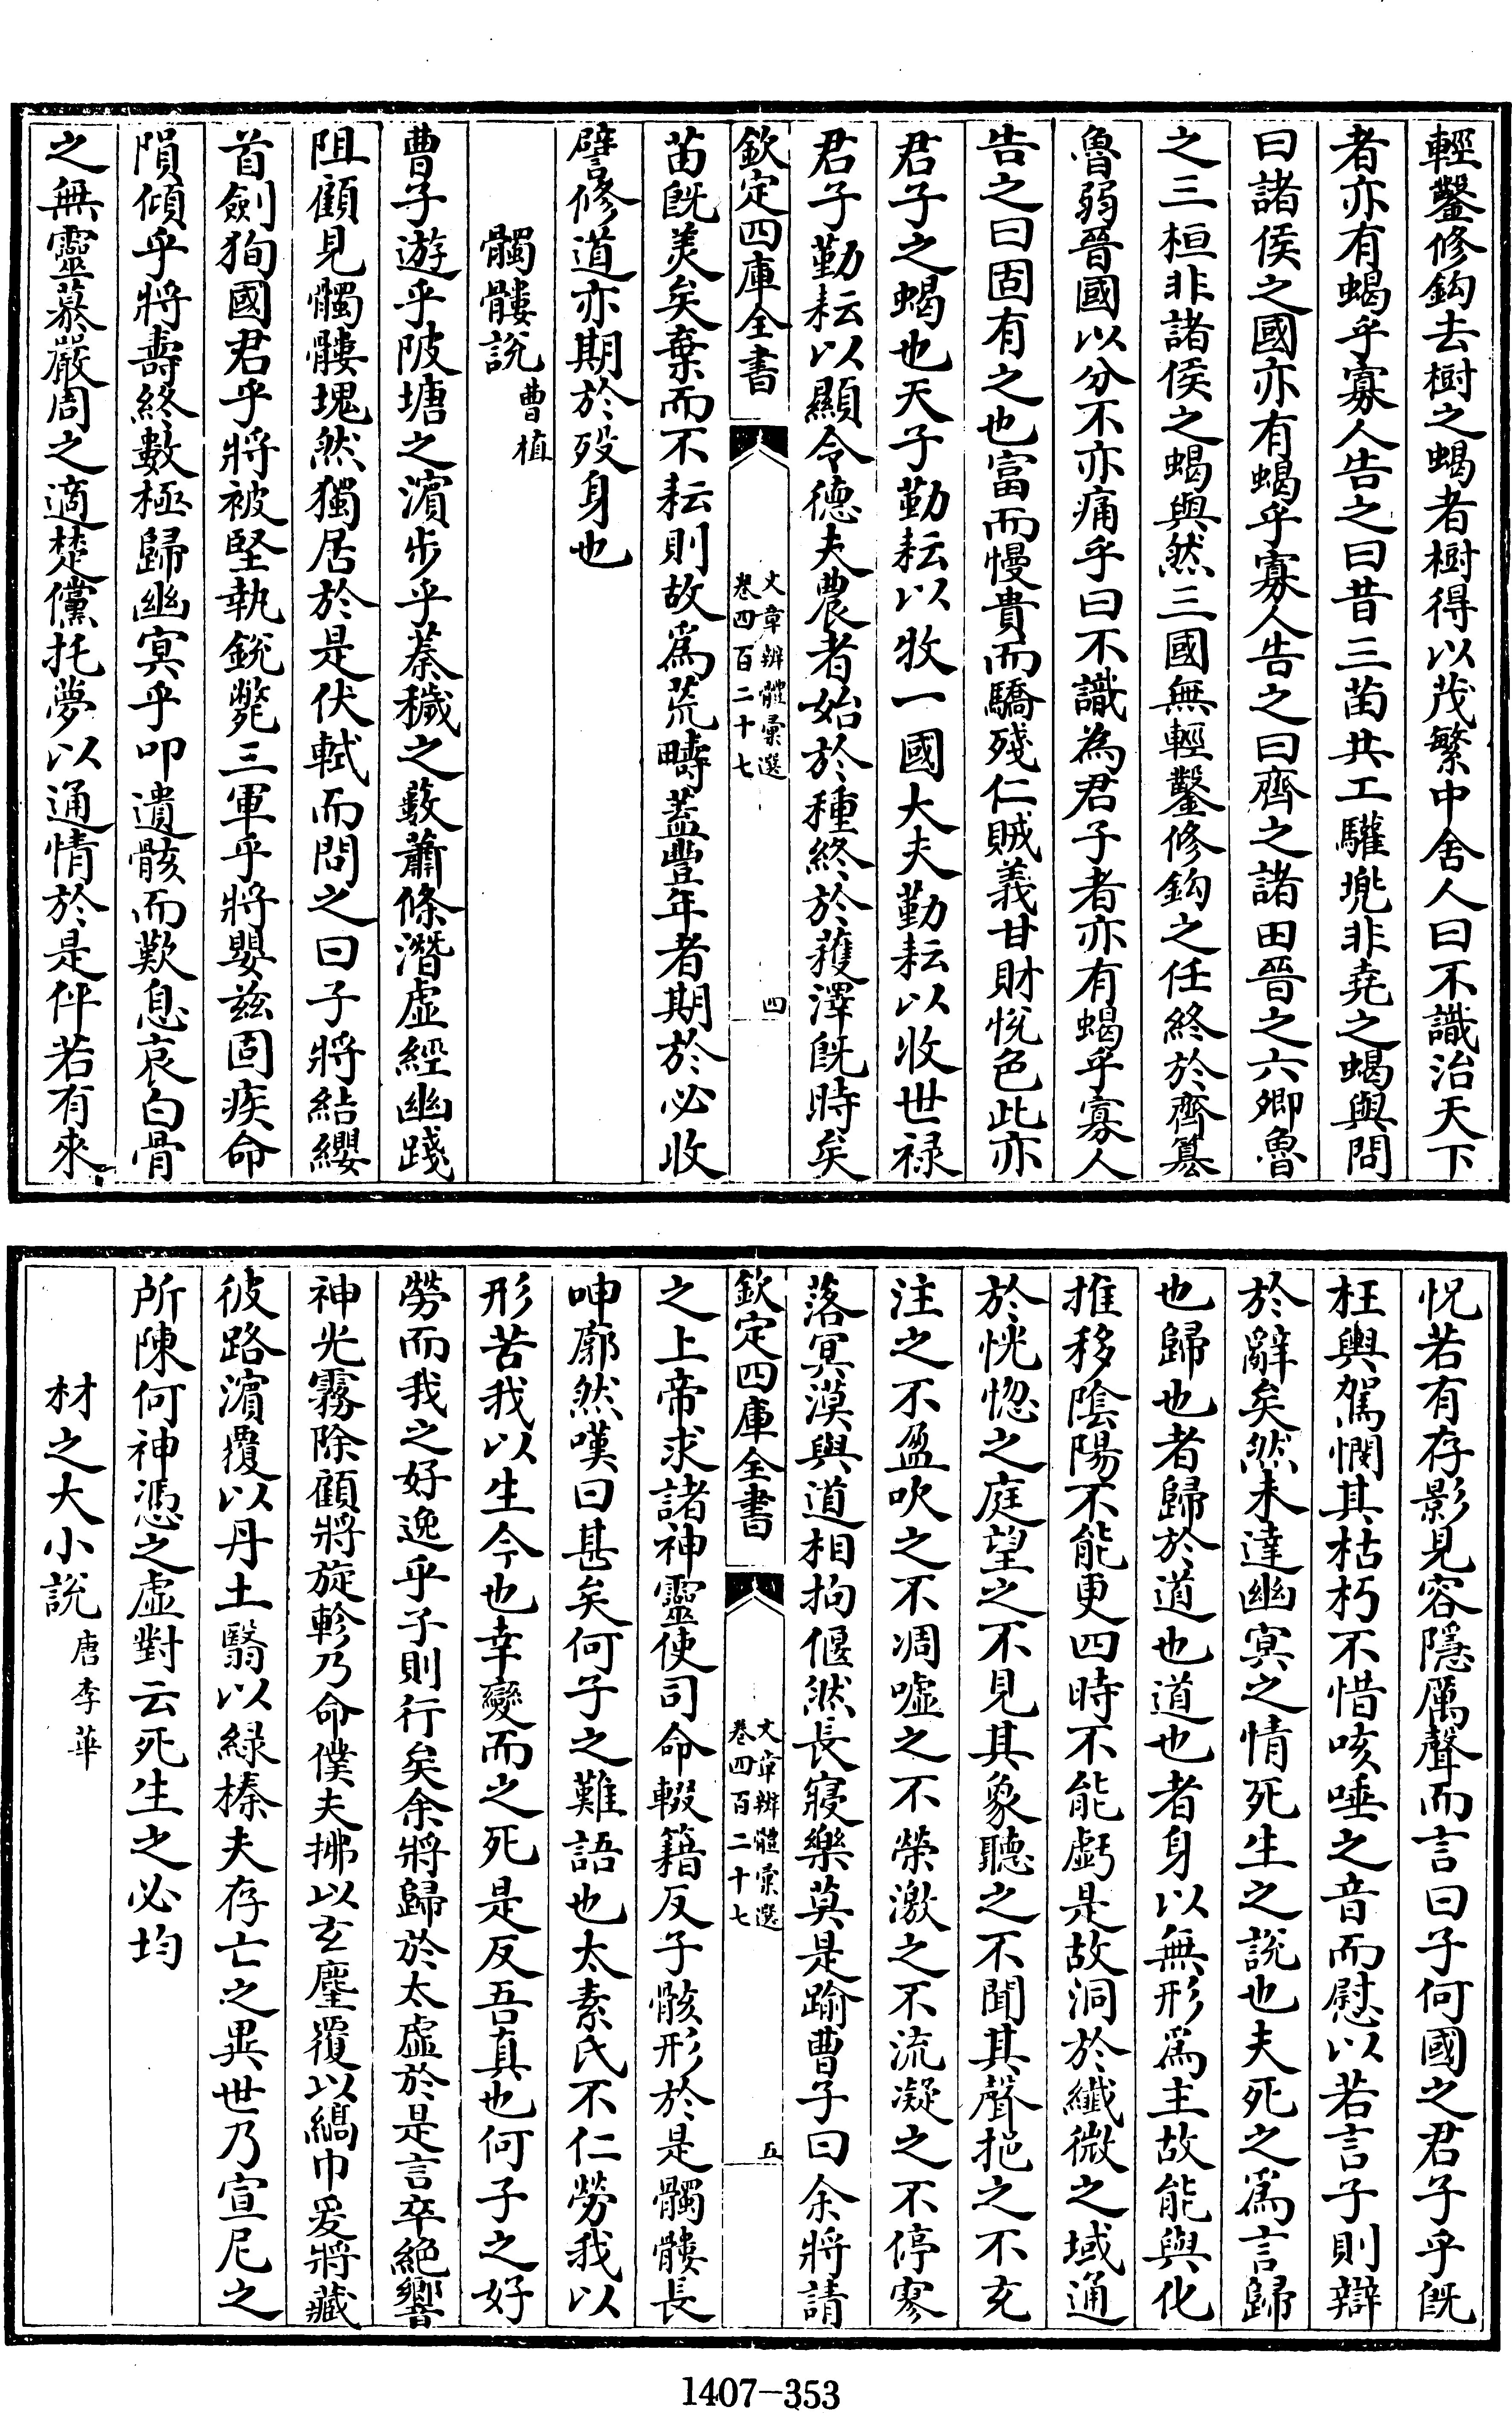 輕鑿修鈎去樹之蝎者樹得以茂繁中舍人曰不識治天下
者亦有蝎乎寡人告之曰昔三苗共工驩兜非堯之蝎與問
曰諸侯之國亦有蝎乎寡人告之曰齊之諸田晉之六卿魯
之三桓非諸侯之蝎與然三國無輕鑿修鈎之任終於齊簒
魯弱晉國以分不亦痛乎曰不識為君子者亦有蝎乎寡人
告之曰固有之也富而慢貴而驕殘仁賊義甘財悅色此亦
君子之蝎也天子勤耘以牧一國大夫勤耘以收世禄
君子勤耘以顯令德夫農者始於種終於蓰澤旣時矣
欽定四庫全書
文章辨體彙選
卷四百二十七
四
苗旣美矣棄而不耘則故爲荒疇蓋豐年者期於必收
譬修道亦期於歿身也
髑髏說 曹植
曹子遊乎陂塘之濵步乎蓁穢之藪蕭條潛虛經幽踐
阻顧見髑髏塊然獨居於是伏軾而問之曰子將結纓
首劍狥國君乎將被堅執銳斃三軍乎將嬰兹固疾命
隕傾乎將壽終數極歸幽冥乎叩遺骸而歎息哀白骨
之無靈慕嚴周之適楚儻托夢以通情於是伴若有來
怳若有存影見容隱厲聲而言曰子何國之君子乎旣
枉輿駕憫其枯朽不惜咳唾之音而慰以若言子則辯
於辭矣然未達幽冥之情死生之說也夫死之爲言歸
也歸也者歸於道也道也者身以無形爲主故能與化
推移陰陽不能更四時不能虧是故洞於纖微之域通
於恍惚之庭望之不見其象聽之不聞其聲挹之不充
注之不盈吹之不凋噓之不榮激之不流凝之不停寥
落冥漠與道相拘偃然長寢樂莫是踰曹子曰余將請
欽定四庫全書
文章辨體彙選
卷四百二十七
五
之上帝求諸神靈使司命輟籍反子骸形於是髑髏長
呻廓然嘆曰甚矣何子之難語也太素氏不仁勞我以
形苦我以生今也幸變而之死是反吾真也何子之好
勞而我之好逸乎子則行矣余將歸於太虛於是言卒絶響
神光霧除顧將旋軫乃命僕夫拂以玄塵覆以縞巾爰將藏
彼路濵覆以丹土翳以緑榛夫存亡之異世乃宣尼之
所陳何神憑之虛對云死生之必均
材之大小說 唐李華
1407-353